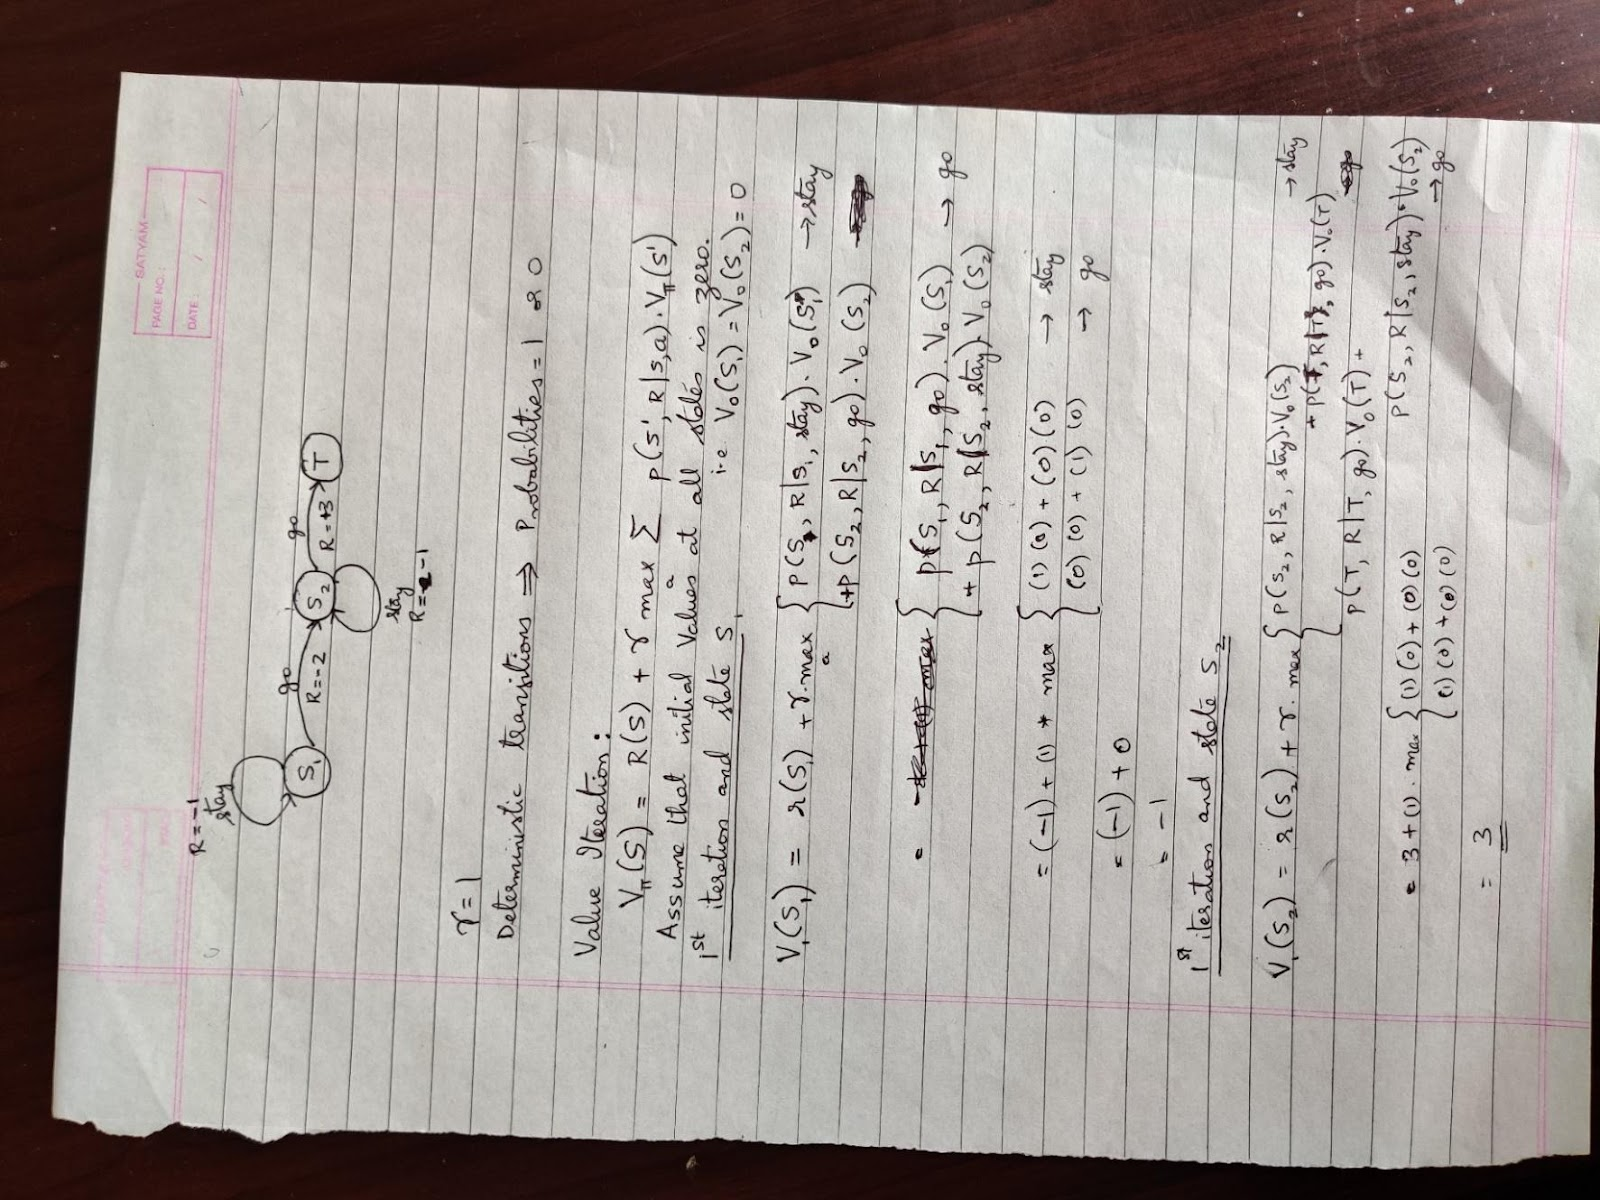 SATYAM
PAGE NO.:
DATE: / /
R=-1
stay
S₁
go
R=-2
S₂
go
R=+3
T
stay
R=-1
γ=1
Deterministic transitions ⇒ Probabilities = 1 or 0
Value Iteration:
Vπ(S) = R(S) + γ max_a Σ P(s', R|s,a)·Vπ(s')
Assume that initial values at all states is zero.
i.e V₀(S₁) = V₀(S₂) = 0
1st iteration and state S₁
V₁(S₁) = r(S₁) + γ·max_a { P(S₁, R|S₁, stay)·V₀(S₁) → stay
+P(S₂, R|S₂, go)·V₀(S₂)
= { P(S₁, R|S₁, go)·V₀(S₁) → go
+ P(S₂, R|S₂, stay)·V₀(S₂)
= (-1) + (1) * max { (1)(0) + (0)(0) → stay
(0)(0) + (1)(0) → go
= (-1) + 0
= -1
1st iteration and state S₂
V₁(S₂) = r(S₂) + γ. max { P(S₂, R|S₂, stay)·V₀(S₂) → stay
+ P(T, R|T, go)·V₀(T)
P(T, R|T, go)·V₀(T) +
P(S₂, R|S₂, stay)·V₀(S₂)
→ go
= 3+(1). max { (1)(0) + (0)(0)
(1)(0) + (0)(0)
= 3